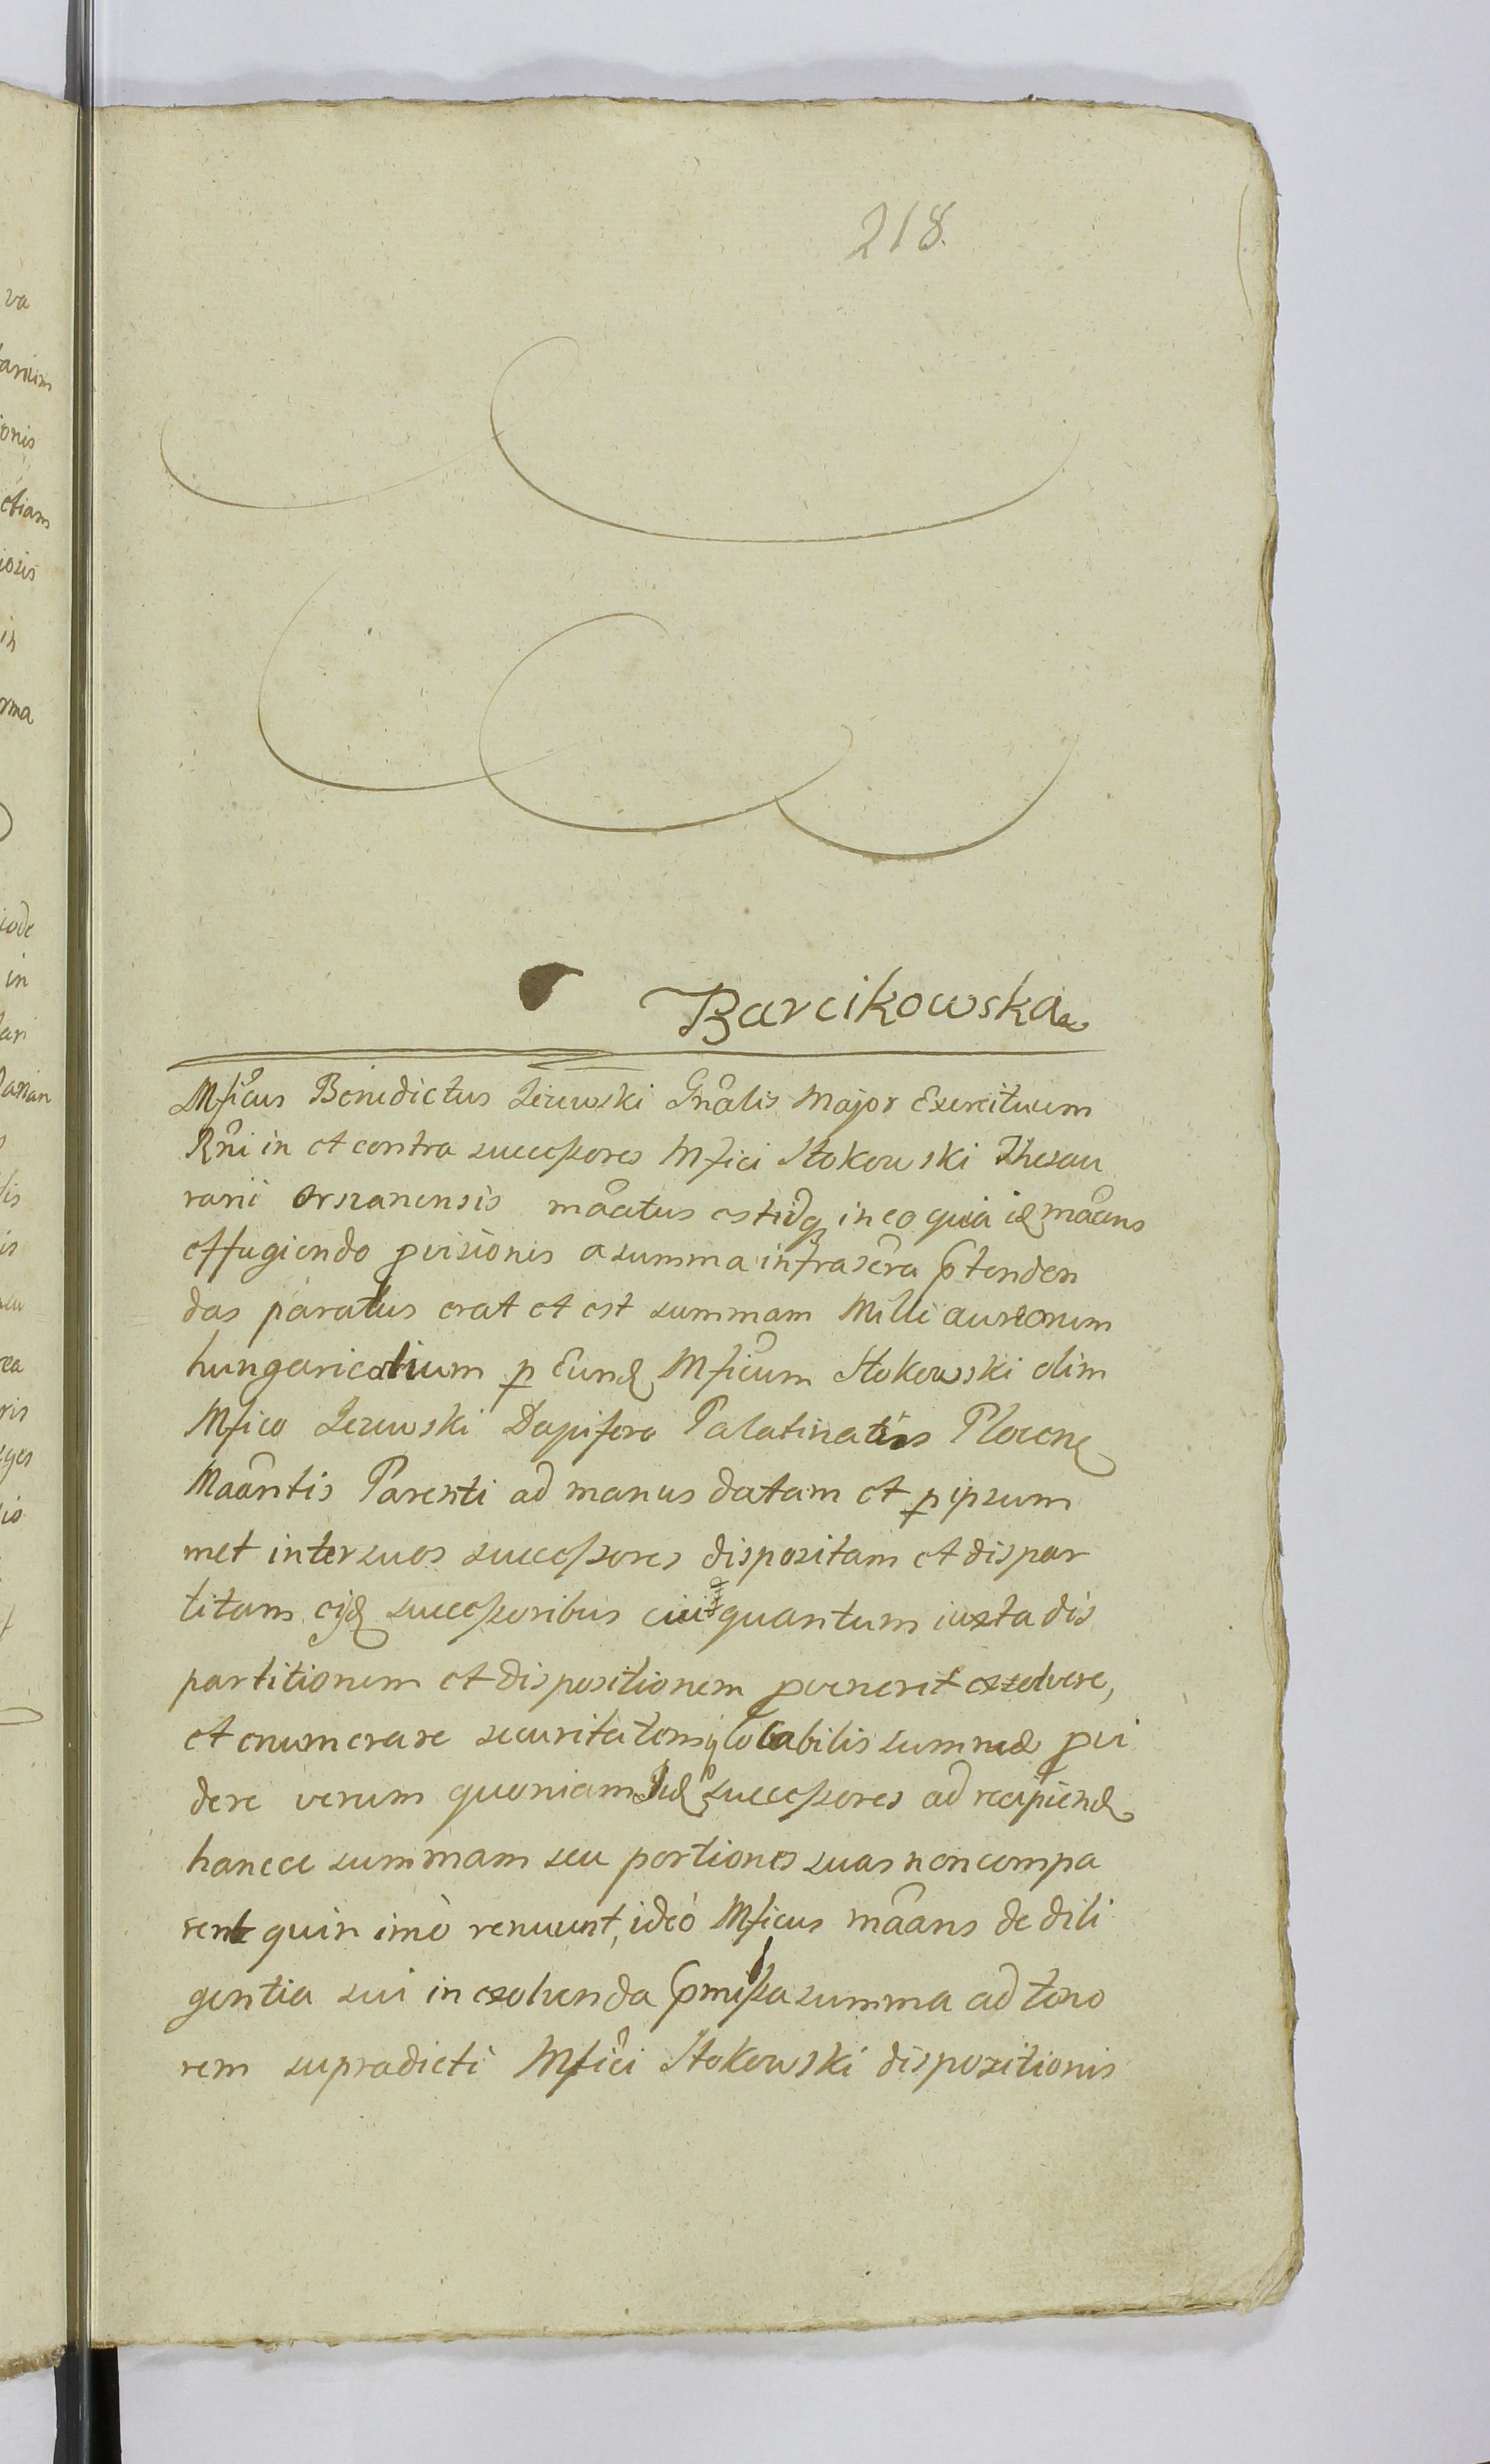 218.
Barcikowska
Mficus Benedictus Lezewski Gnalis Major Exercituum
Rni in et contra successores Mfici Stokowski Thesau
rarii Orszanensis maatus estidq in eo quia id maans
effugiendo pvisiones a summa infrascra ptenden
das paratus erat et est summam Mille aureorum
hungaricalium p Eund Mficum Stokowski olim
Mfico Lezewski Dapifero Palatinatus Plocen
Maantis Parenti ad manus datam et p ipsum
met inter suos successores dispositam et dispar
titam eisd successoribus cui quantum iuxta dis
partitionem et dispositionem pvenerit exolvere,
et enumerare securitatem labilis summæ pvi
dere verum quoniam iid successores ad recipiend
hancce summam seu portiones suas non compa
rent quin imò renuunt, ideò Mficus maans de dili
gentia sui in exolvenda pmissa summa ad teno
rem supradicti Mfici Stokowski dispositionis